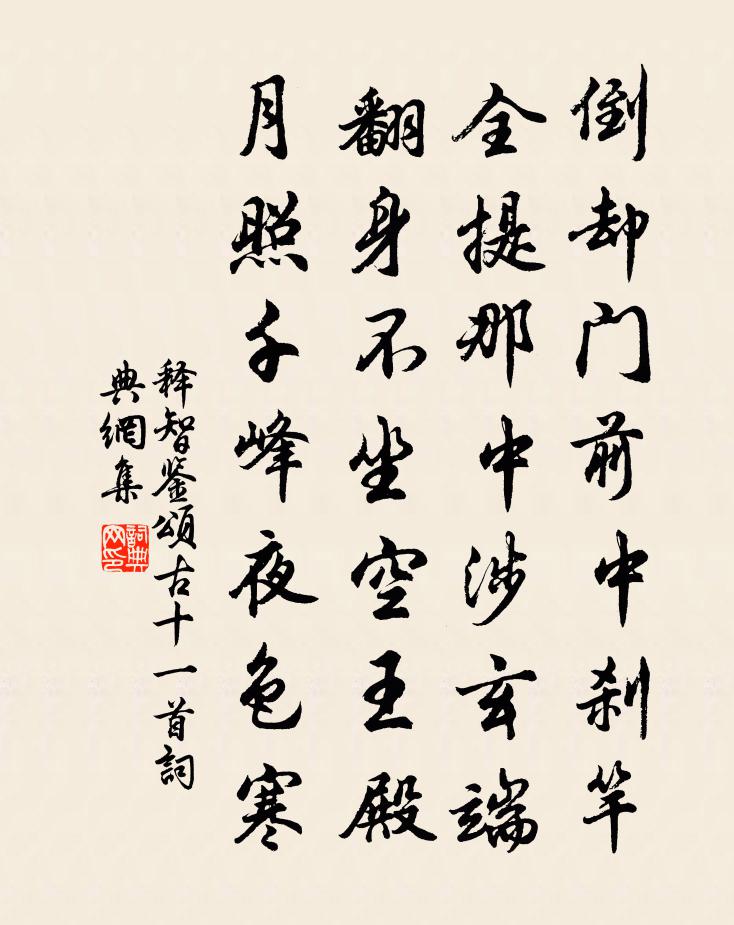 倒却门前中刹竿
全提那中涉玄端
翻身不坐空王殿
月照千峰夜色寒
释智鉴颂古十一首詞
典網集
詞典
网印